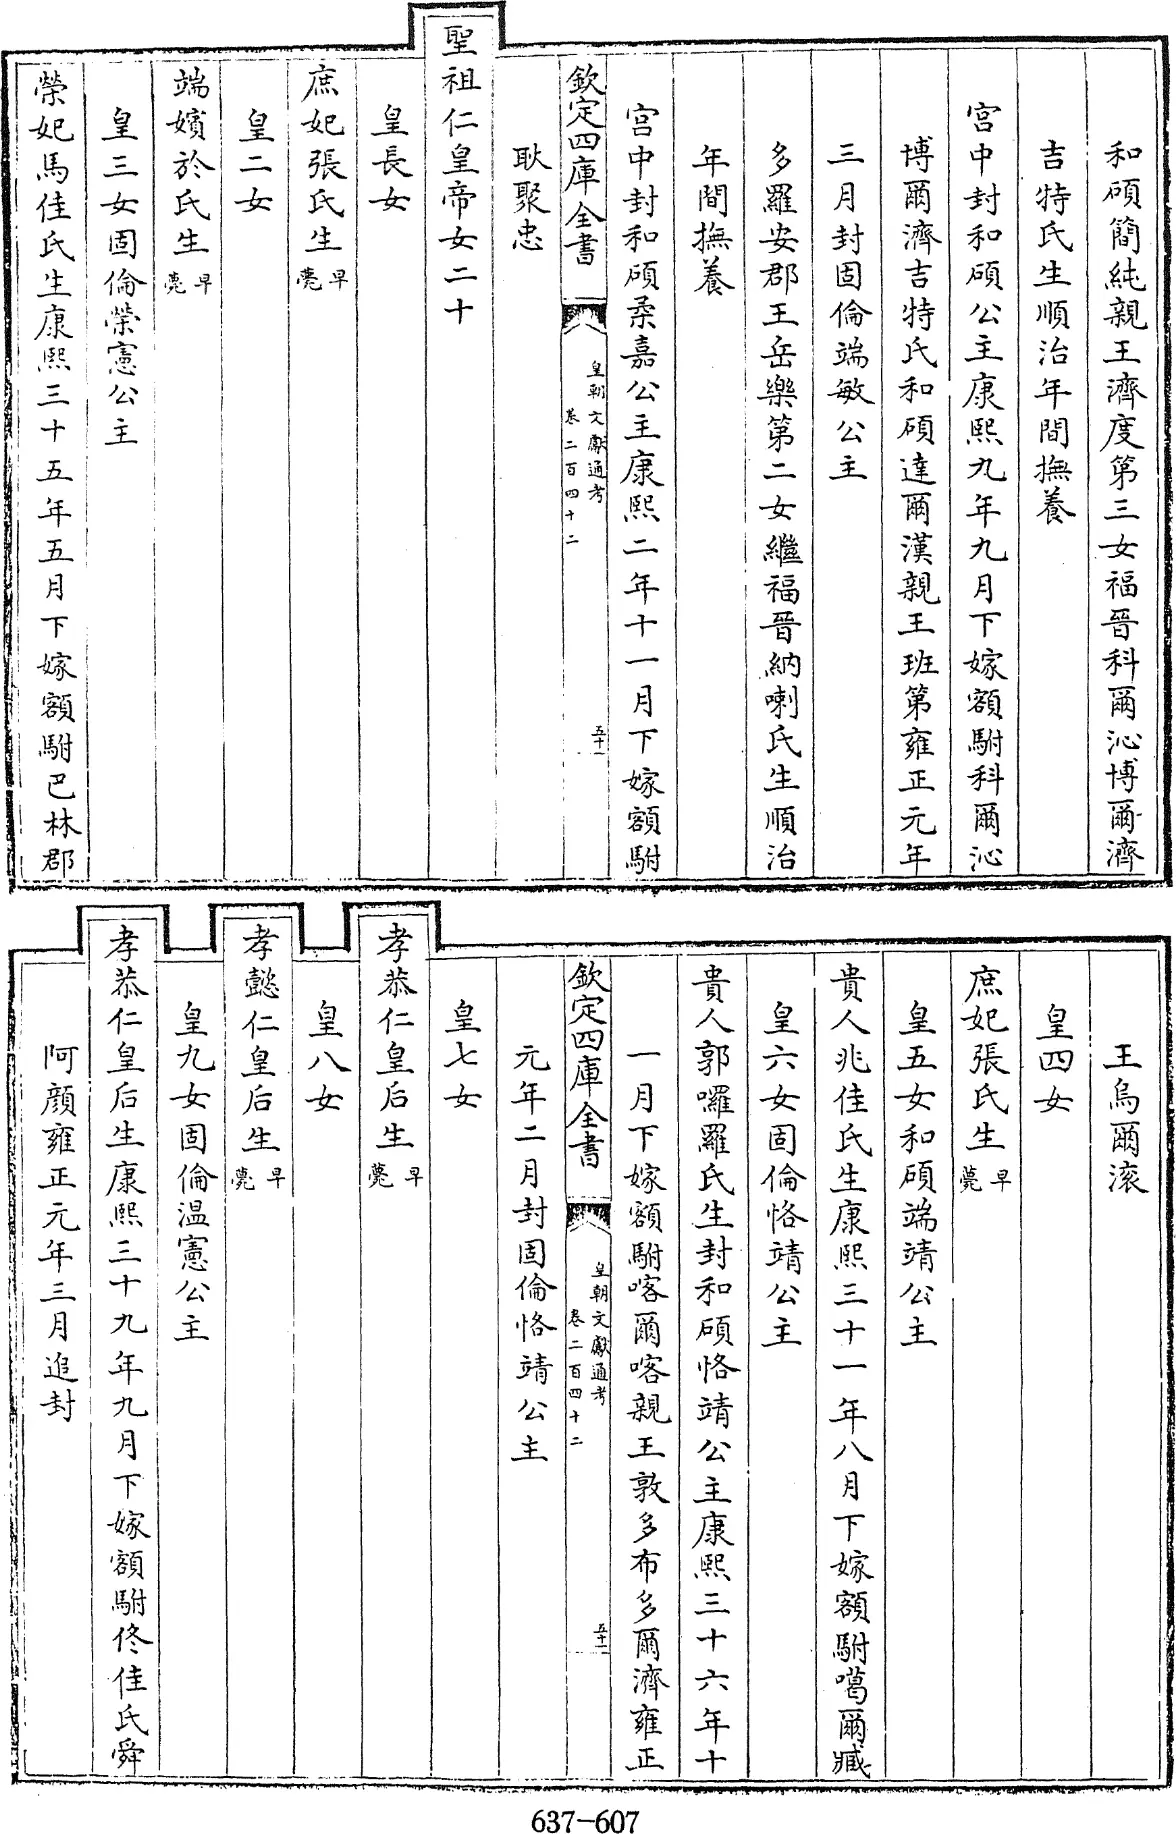 和碩簡純親王濟度第三女福晉科爾沁博爾濟
吉特氏生順治年間撫養
宫中封和碩公主康熙九年九月下嫁額駙科爾沁
博爾濟吉特氏和碩達爾漢親王班第雍正元年
三月封固倫端敏公主
多羅安郡王岳樂第二女繼福晉納喇氏生順治
年間撫養
宫中封和碩柔嘉公主康熙二年十一月下嫁額駙
欽定四庫全書
皇朝文獻通考
卷二百四十二
五十一
耿聚忠
聖祖仁皇帝女二十
皇長女
庶妃張氏生早薨
皇二女
端嬪於氏生早薨
皇三女固倫榮憲公主
榮妃馬佳氏生康熙三十五年五月下嫁額駙巴林郡
王烏爾滚
皇四女
庶妃張氏生早薨
皇五女和碩端靖公主
貴人兆佳氏生康熙三十一年八月下嫁額駙噶爾臧
皇六女固倫恪靖公主
貴人郭囉羅氏生封和碩恪靖公主康熙三十六年十
一月下嫁額駙喀爾喀親王敦多布多爾濟雍正
欽定四庫全書
皇朝文獻通考
卷二百四十二
五十一
元年二月封固倫恪靖公主
皇七女
孝恭仁皇后生早薨
皇八女
孝懿仁皇后生早薨
皇九女固倫温憲公主
孝恭仁皇后生康熙三十九年九月下嫁額駙佟佳氏舜
阿顔雍正元年三月追封
637-607